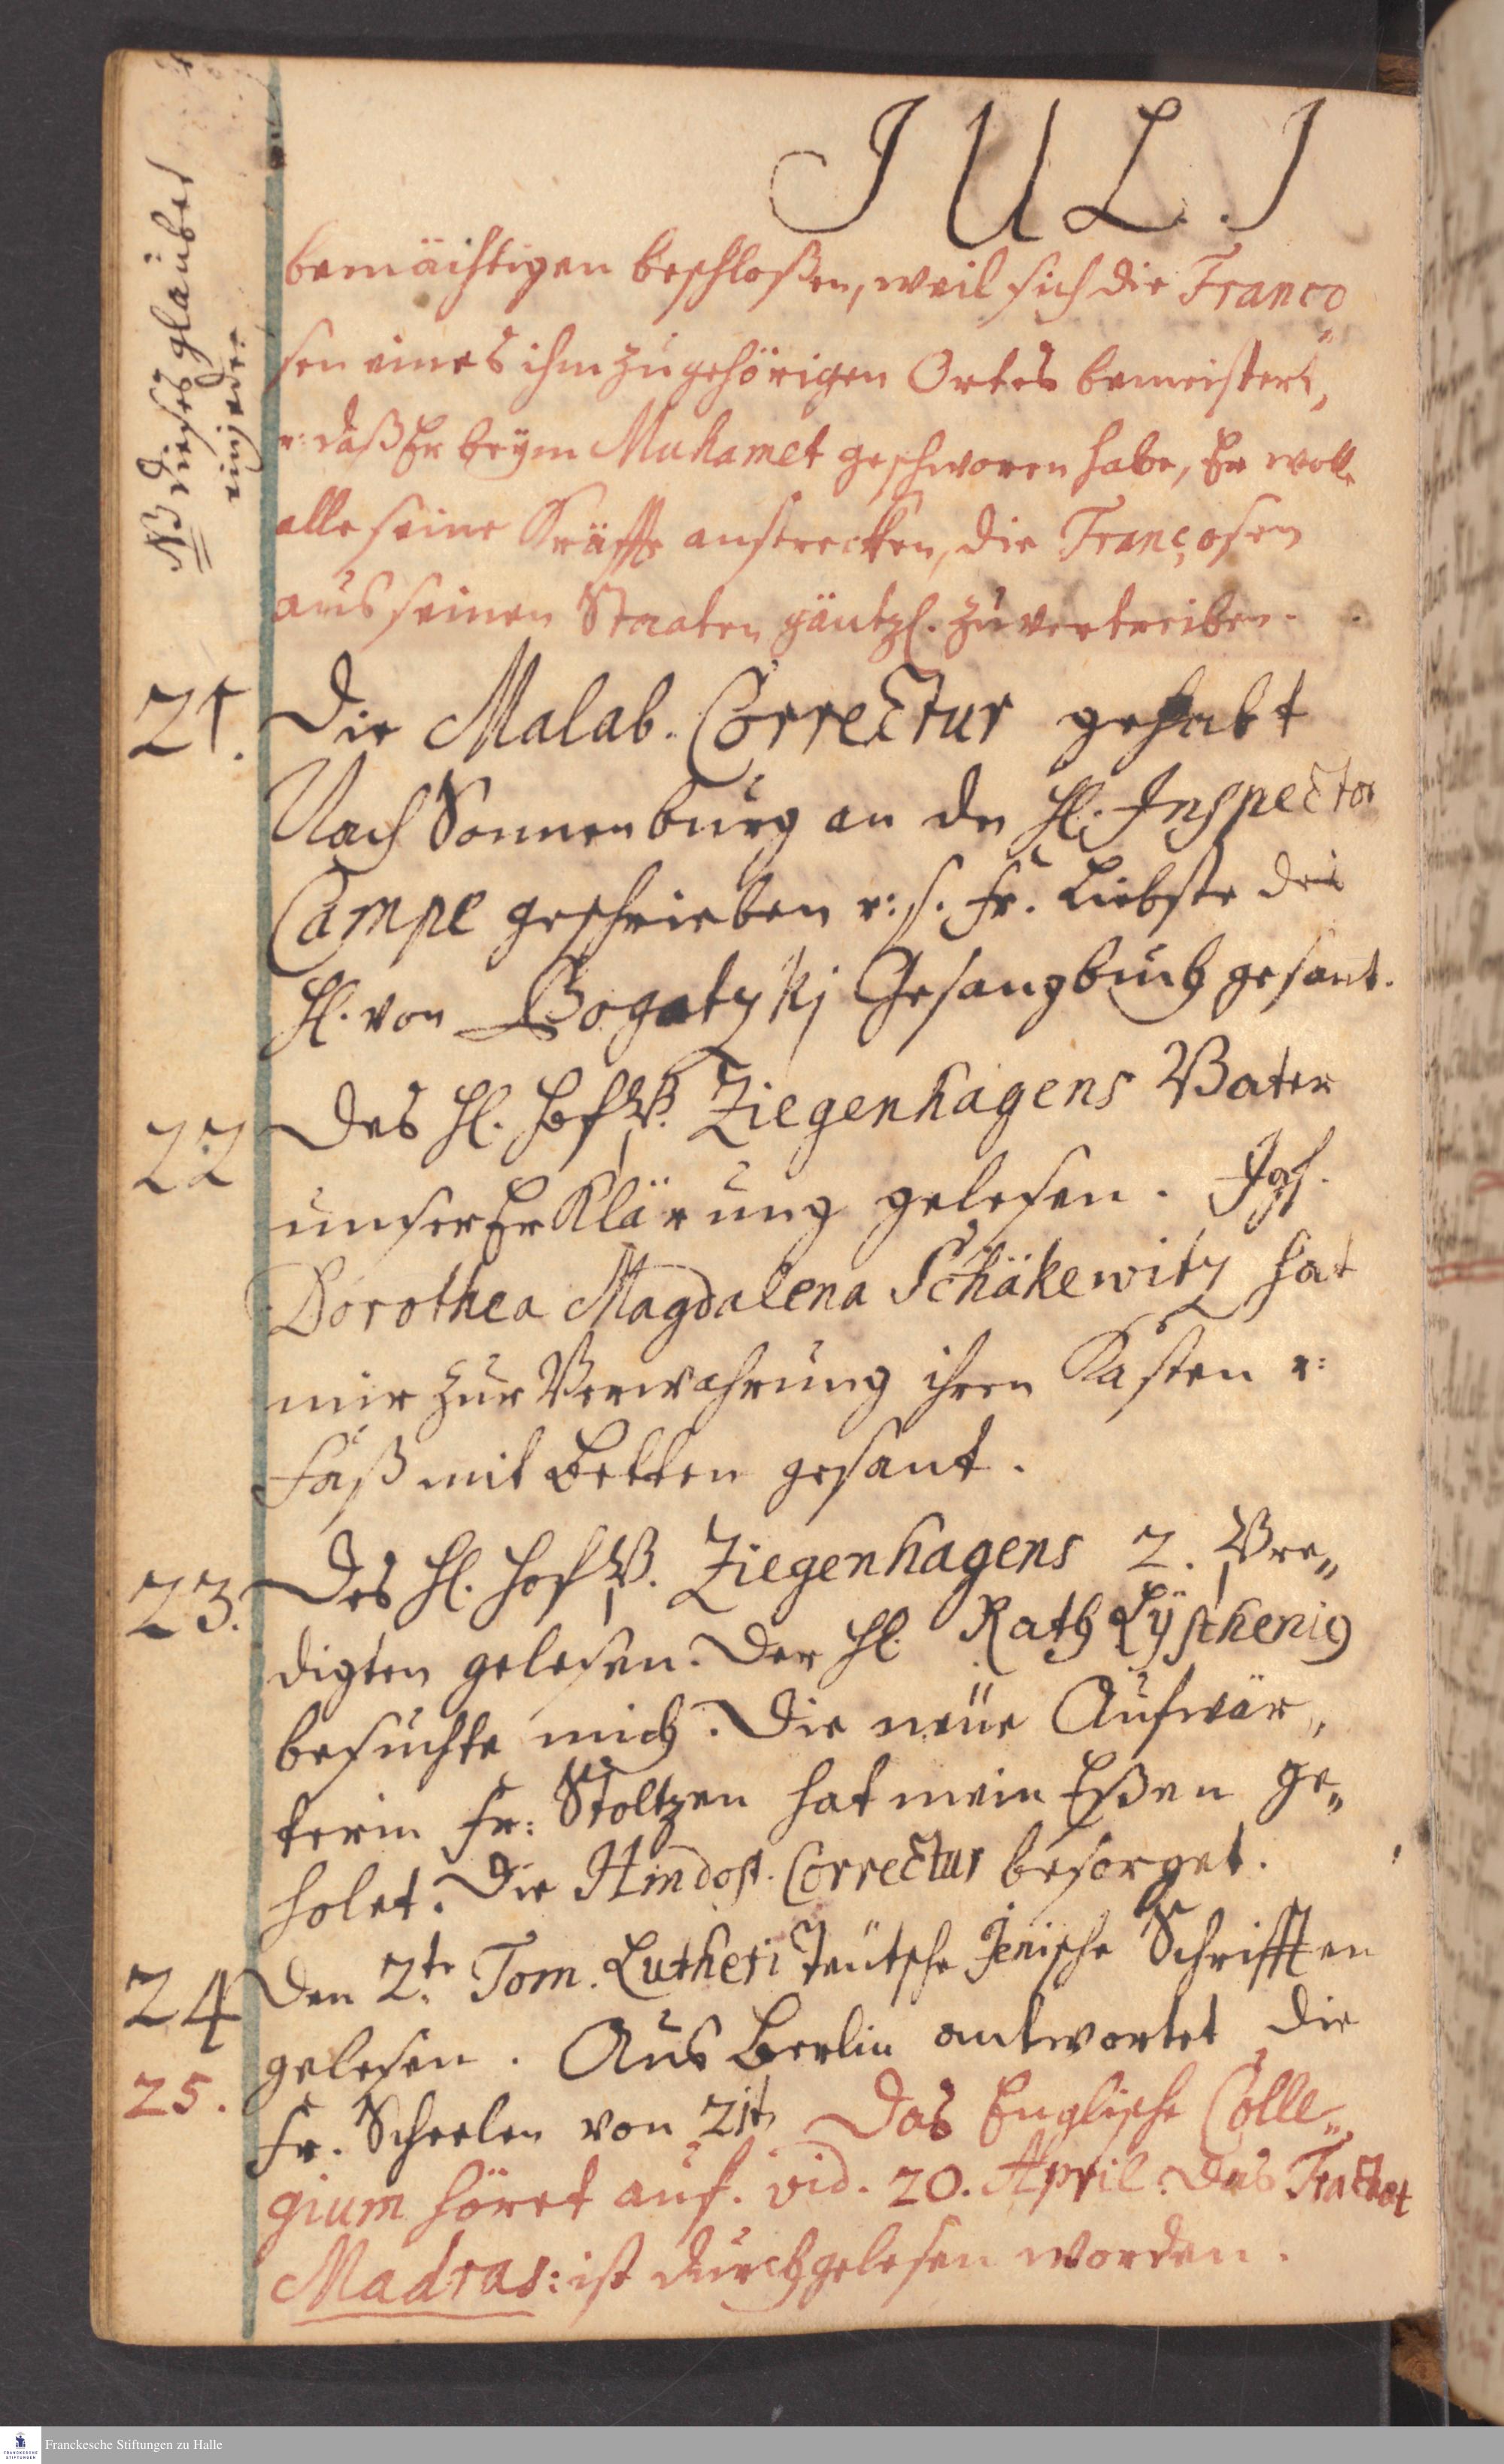 JULJ
NB Dieses glaubet
ein jeder
bemächtigen beschloßen, weil sich die Franco
sen eines ihm zugehörigen Ortes bemeistert,
u: daß Er beÿm Muhamet geschworen habe, Er wolle
alle seine Kräffte anstrecken, die Françosen
aus seinen Staaten gäntzl. zu vertreiben.
21. Die Malab. Correctur gehabt
Nach Sonnenburg an den H. Inspector
Campe geschrieben u: s. Fr. Liebste des
H. von Bogatzkj Gesangbuch gesant.
22 Des H. Hof P. Ziegenhagens Vater
unser Erklärung gelesen. Jgf.
Dorothea Magdalena Schäkewitz hat
mir zur Verwahrung ihren Kasten u:
Faß mit Betten gesant.
23. Des H. Hof P. Ziegenhagens 2. Pre„
digten gelesen. Der H. Rath Lÿsthenig
besuchte mich. Die neüe Aufwär„
terin Fr: Stoltzen hat mein Eßen ge„
holet. Die Hindost. Correctur besorget.
24 Den 2.te Tom. Lutheri Teütsche Jenische Schrifften
gelesen. Aus Berlin antwortet die
Fr. Scheelen von 21t.
25. Das Englische Colle„
gium höret auf. vid. 20. April. Das Tractat
Madras: ist durchgelesen worden.
Franckesche Stiftungen zu Halle